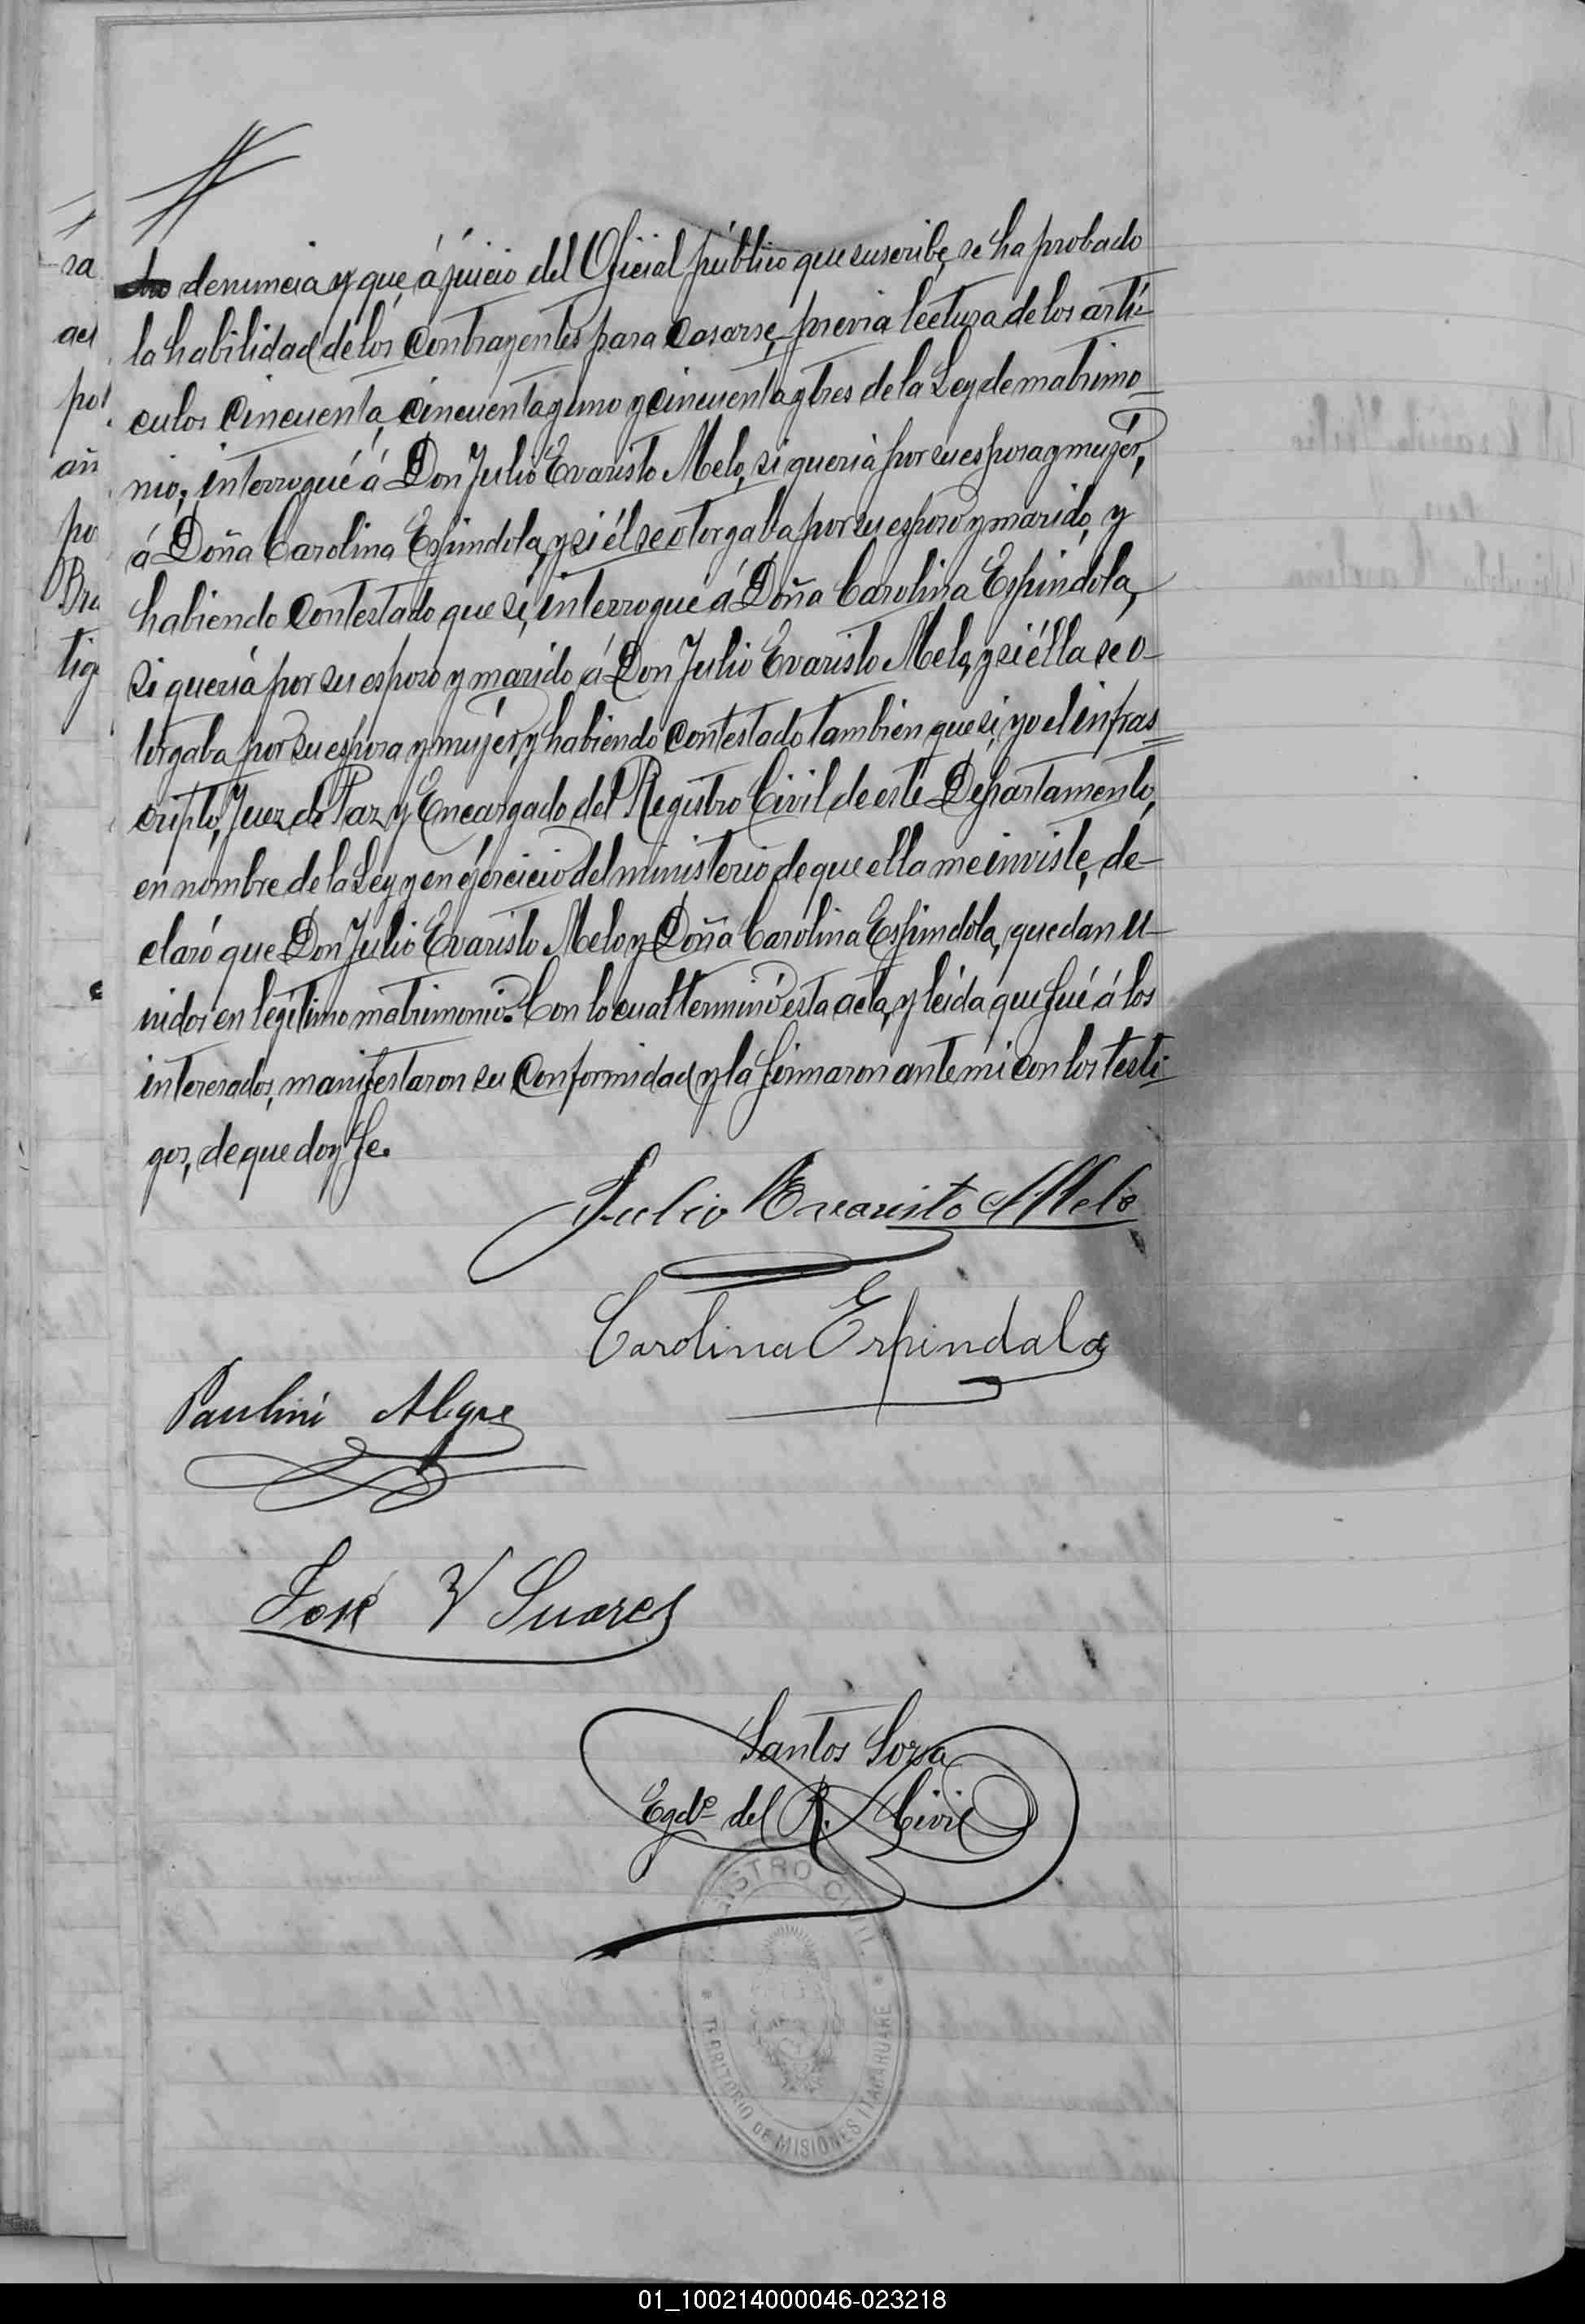 denuncia y que, á juicio del Oficial público que suscribe, se ha probado
la habilidad de los Contrayentes para Casarse, previa lectura de los artí-
culos Cincuenta, Cincuenta y uno y cincuenta y tres de la Ley de matrimo-
nio; interrogué á Don Julio Evaristo Melo, si queriá por su esposa y mujér,
á Doña Carolina Espindola, y si él se otorgaba por su esposo y marido, y
habiendo Contestado que si, interrogué á Doña Carolina Espindola,
si queriá por su esposo y marido á Don Julio Evaristo Melo, y si élla se o-
torgaba por su esposa y mujér, y habiendo Contestado tambien que si, yo el infras
cripto, Juez de Paz y Encargado del Registro Civil de este Departamento,
en nombre de la Ley y en ejercicio del ministerio de que ella me inviste, de-
claró que Don Julio Evaristo Melo y Doña Carolina Espindola, quedan u-
nidos en legítimo matrimonio. Con lo cual terminó esta acta, y leida que fué á los
interesados, manifestaron su Conformidad y la firmaron ante mi con los testi-
gos, de que doy fe.
Julio Evaristo Melo
Carolina Espindala
Paulini Alegre
José V Suares
Santos Sosa
Egdo del R. Civil
REGISTRO CIVIL
TERRITORIO DE MISIONES ITACARUARE
ra
act
pot
añ
po
Bra
tig
01_100214000046-023218